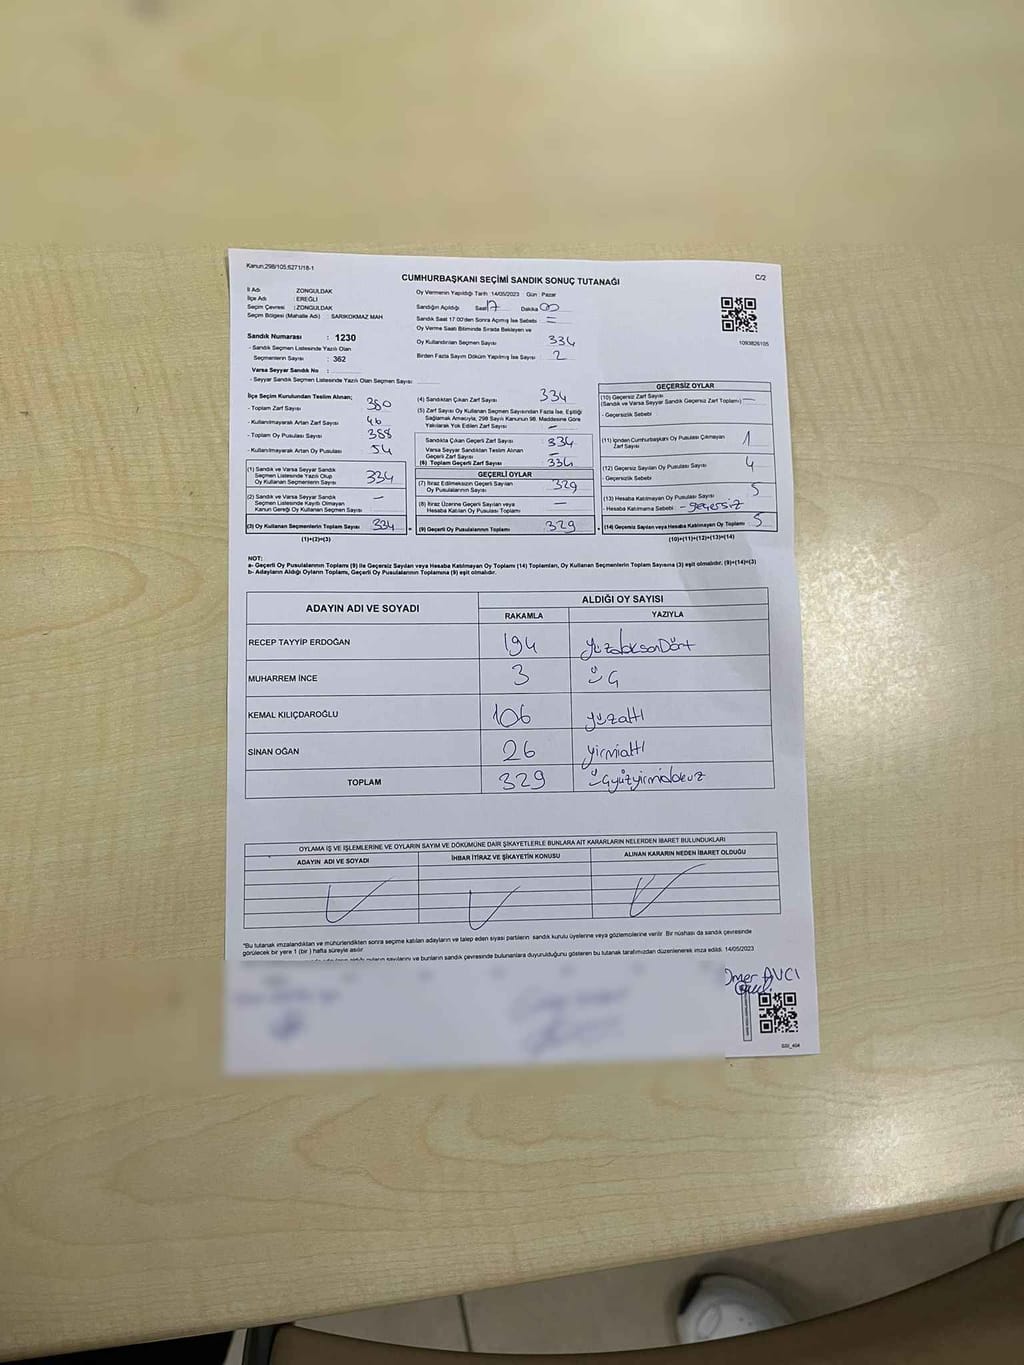 Kanun:298/105;6271/18-1
C/2
CUMHURBAŞKANI SEÇİMİ SANDIK SONUÇ TUTANAĞI
İl Adı : ZONGULDAK
İlçe Adı : EREĞLİ
Seçim Çevresi : ZONGULDAK
Seçim Bölgesi (Mahalle Adı) : SARIKOKMAZ MAH
Sandık Numarası : 1230
- Sandık Seçmen Listesinde Yazılı Olan
Seçmenlerin Sayısı : 362
Varsa Seyyar Sandık No :
- Seyyar Sandık Seçmen Listesinde Yazılı Olan Seçmen Sayısı
Oy Vermenin Yapıldığı Tarih :14/05/2023 Gün : Pazar
Sandığın Açıldığı Saat 17 Dakika 00
Sandık Saat 17:00'den Sonra Açılmış İse Sebebi =
Oy Verme Saati Bitiminde Sırada Bekleyen ve
Oy Kullandırılan Seçmen Sayısı 334
Birden Fazla Sayım Döküm Yapılmış İse Sayısı 2
1093826105
İlçe Seçim Kurulundan Teslim Alınan;
- Toplam Zarf Sayısı 380
- Kullanılmayarak Artan Zarf Sayısı 46
- Toplam Oy Pusulası Sayısı 388
- Kullanılmayarak Artan Oy Pusulası 54
(1) Sandık ve Varsa Seyyar Sandık
Seçmen Listesinde Yazılı Olup
Oy Kullanan Seçmenlerin Sayısı 334
(2) Sandık ve Varsa Seyyar Sandık
Seçmen Listesinde Kayıtlı Olmayan
Kanun Gereği Oy Kullanan Seçmen Sayısı –
(3) Oy Kullanan Seçmenlerin Toplam Sayısı 334
(1)+(2)=(3)
(4) Sandıktan Çıkan Zarf Sayısı 334
(5) Zarf Sayısı Oy Kullanan Seçmen Sayısından Fazla İse, Eşitliği
Sağlamak Amacıyla, 298 Sayılı Kanunun 98. Maddesine Göre
Yakılarak Yok Edilen Zarf Sayısı –
Sandıkta Çıkan Geçerli Zarf Sayısı : 334
Varsa Seyyar Sandıktan Teslim Alınan
Geçerli Zarf Sayısı –
(6) Toplam Geçerli Zarf Sayısı 334
GEÇERLİ OYLAR
(7) İtiraz Edilmeksizin Geçerli Sayılan
Oy Pusulalarının Sayısı 329
(8) İtiraz Üzerine Geçerli Sayılan veya
Hesaba Katılan Oy Pusulası Toplamı –
= (9) Geçerli Oy Pusulalarının Toplamı 329
GEÇERSİZ OYLAR
(10) Geçersiz Zarf Sayısı
(Sandık ve Varsa Seyyar Sandık Geçersiz Zarf Toplamı) –
- Geçersizlik Sebebi
(11) İçinden Cumhurbaşkanı Oy Pusulası Çıkmayan
Zarf Sayısı 1
(12) Geçersiz Sayılan Oy Pusulası Sayısı 4
- Geçersizlik Sebebi
(13) Hesaba Katılmayan Oy Pusulası Sayısı 5
- Hesaba Katılmama Sebebi - geçersiz
+ (14) Geçersiz Sayılan veya Hesaba Katılmayan Oy Toplamı 5
(10)+(11)+(12)+(13)=(14)
NOT:
a- Geçerli Oy Pusulalarının Toplamı (9) ile Geçersiz Sayılan veya Hesaba Katılmayan Oy Toplamı (14) Toplamları, Oy Kullanan Seçmenlerin Toplam Sayısına (3) eşit olmalıdır. (9)+(14)=(3)
b- Adayların Aldığı Oyların Toplamı, Geçerli Oy Pusulalarının Toplamına (9) eşit olmalıdır.
ADAYIN ADI VE SOYADI ALDIĞI OY SAYISI
RAKAMLA YAZIYLA
RECEP TAYYİP ERDOĞAN 194 yüzdoksanDört
MUHARREM İNCE 3 üç
KEMAL KILIÇDAROĞLU 106 yüzaltı
SİNAN OĞAN 26 yirmialtı
TOPLAM 329 üçyüzyirmidokuz
OYLAMA İŞ VE İŞLEMLERİNE VE OYLARIN SAYIM VE DÖKÜMÜNE DAİR ŞİKAYETLERLE BUNLARA AİT KARARLARIN NELERDEN İBARET BULUNDUKLARI
ADAYIN ADI VE SOYADI İHBAR İTİRAZ VE ŞİKAYETİN KONUSU ALINAN KARARIN NEDEN İBARET OLDUĞU
"Bu tutanak imzalandıktan ve mühürlendikten sonra seçime katılan adayların ve talep eden siyasi partilerin sandık kurulu üyelerine veya gözlemcilerine verilir. Bir nüshası da sandık çevresinde
görülecek bir yere 1 (bir ) hafta süreyle asılır.
aldığı oyların sayılarını ve bunların sandık çevresinde bulunanlara duyurulduğunu gösteren bu tutanak tarafımızdan düzenlenerek imza edildi. 14/05/2023
Ömer AVCI